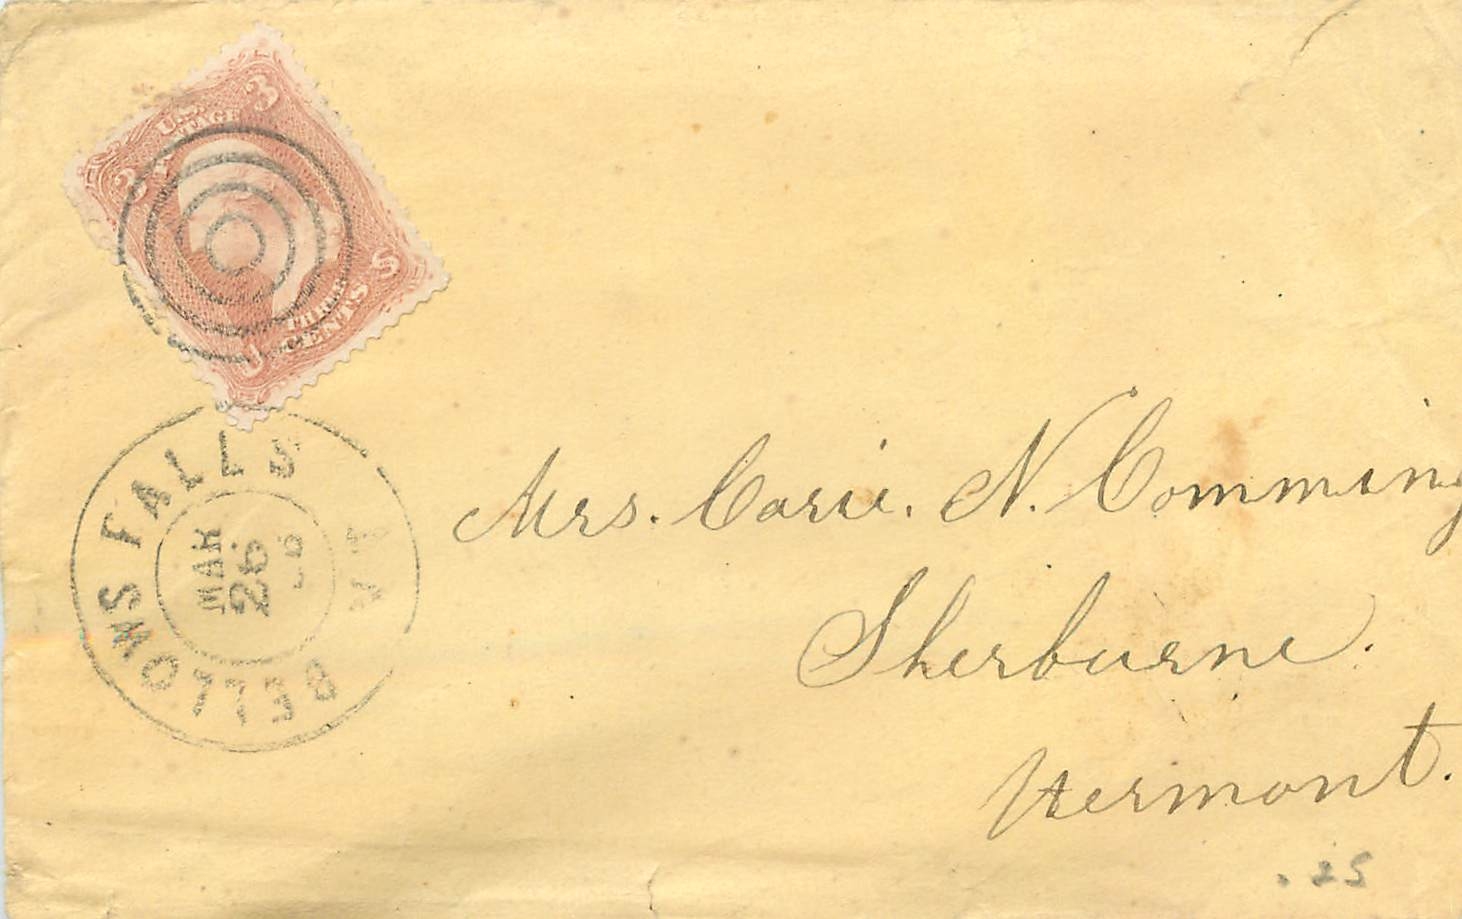 U.S.
POSTAGE
3 3
THREE
CENTS
U S
BELLOWS FALLS VT
MAR
26
Mrs. Carie. N. Comming
Sherburne.
Vermont.
.25